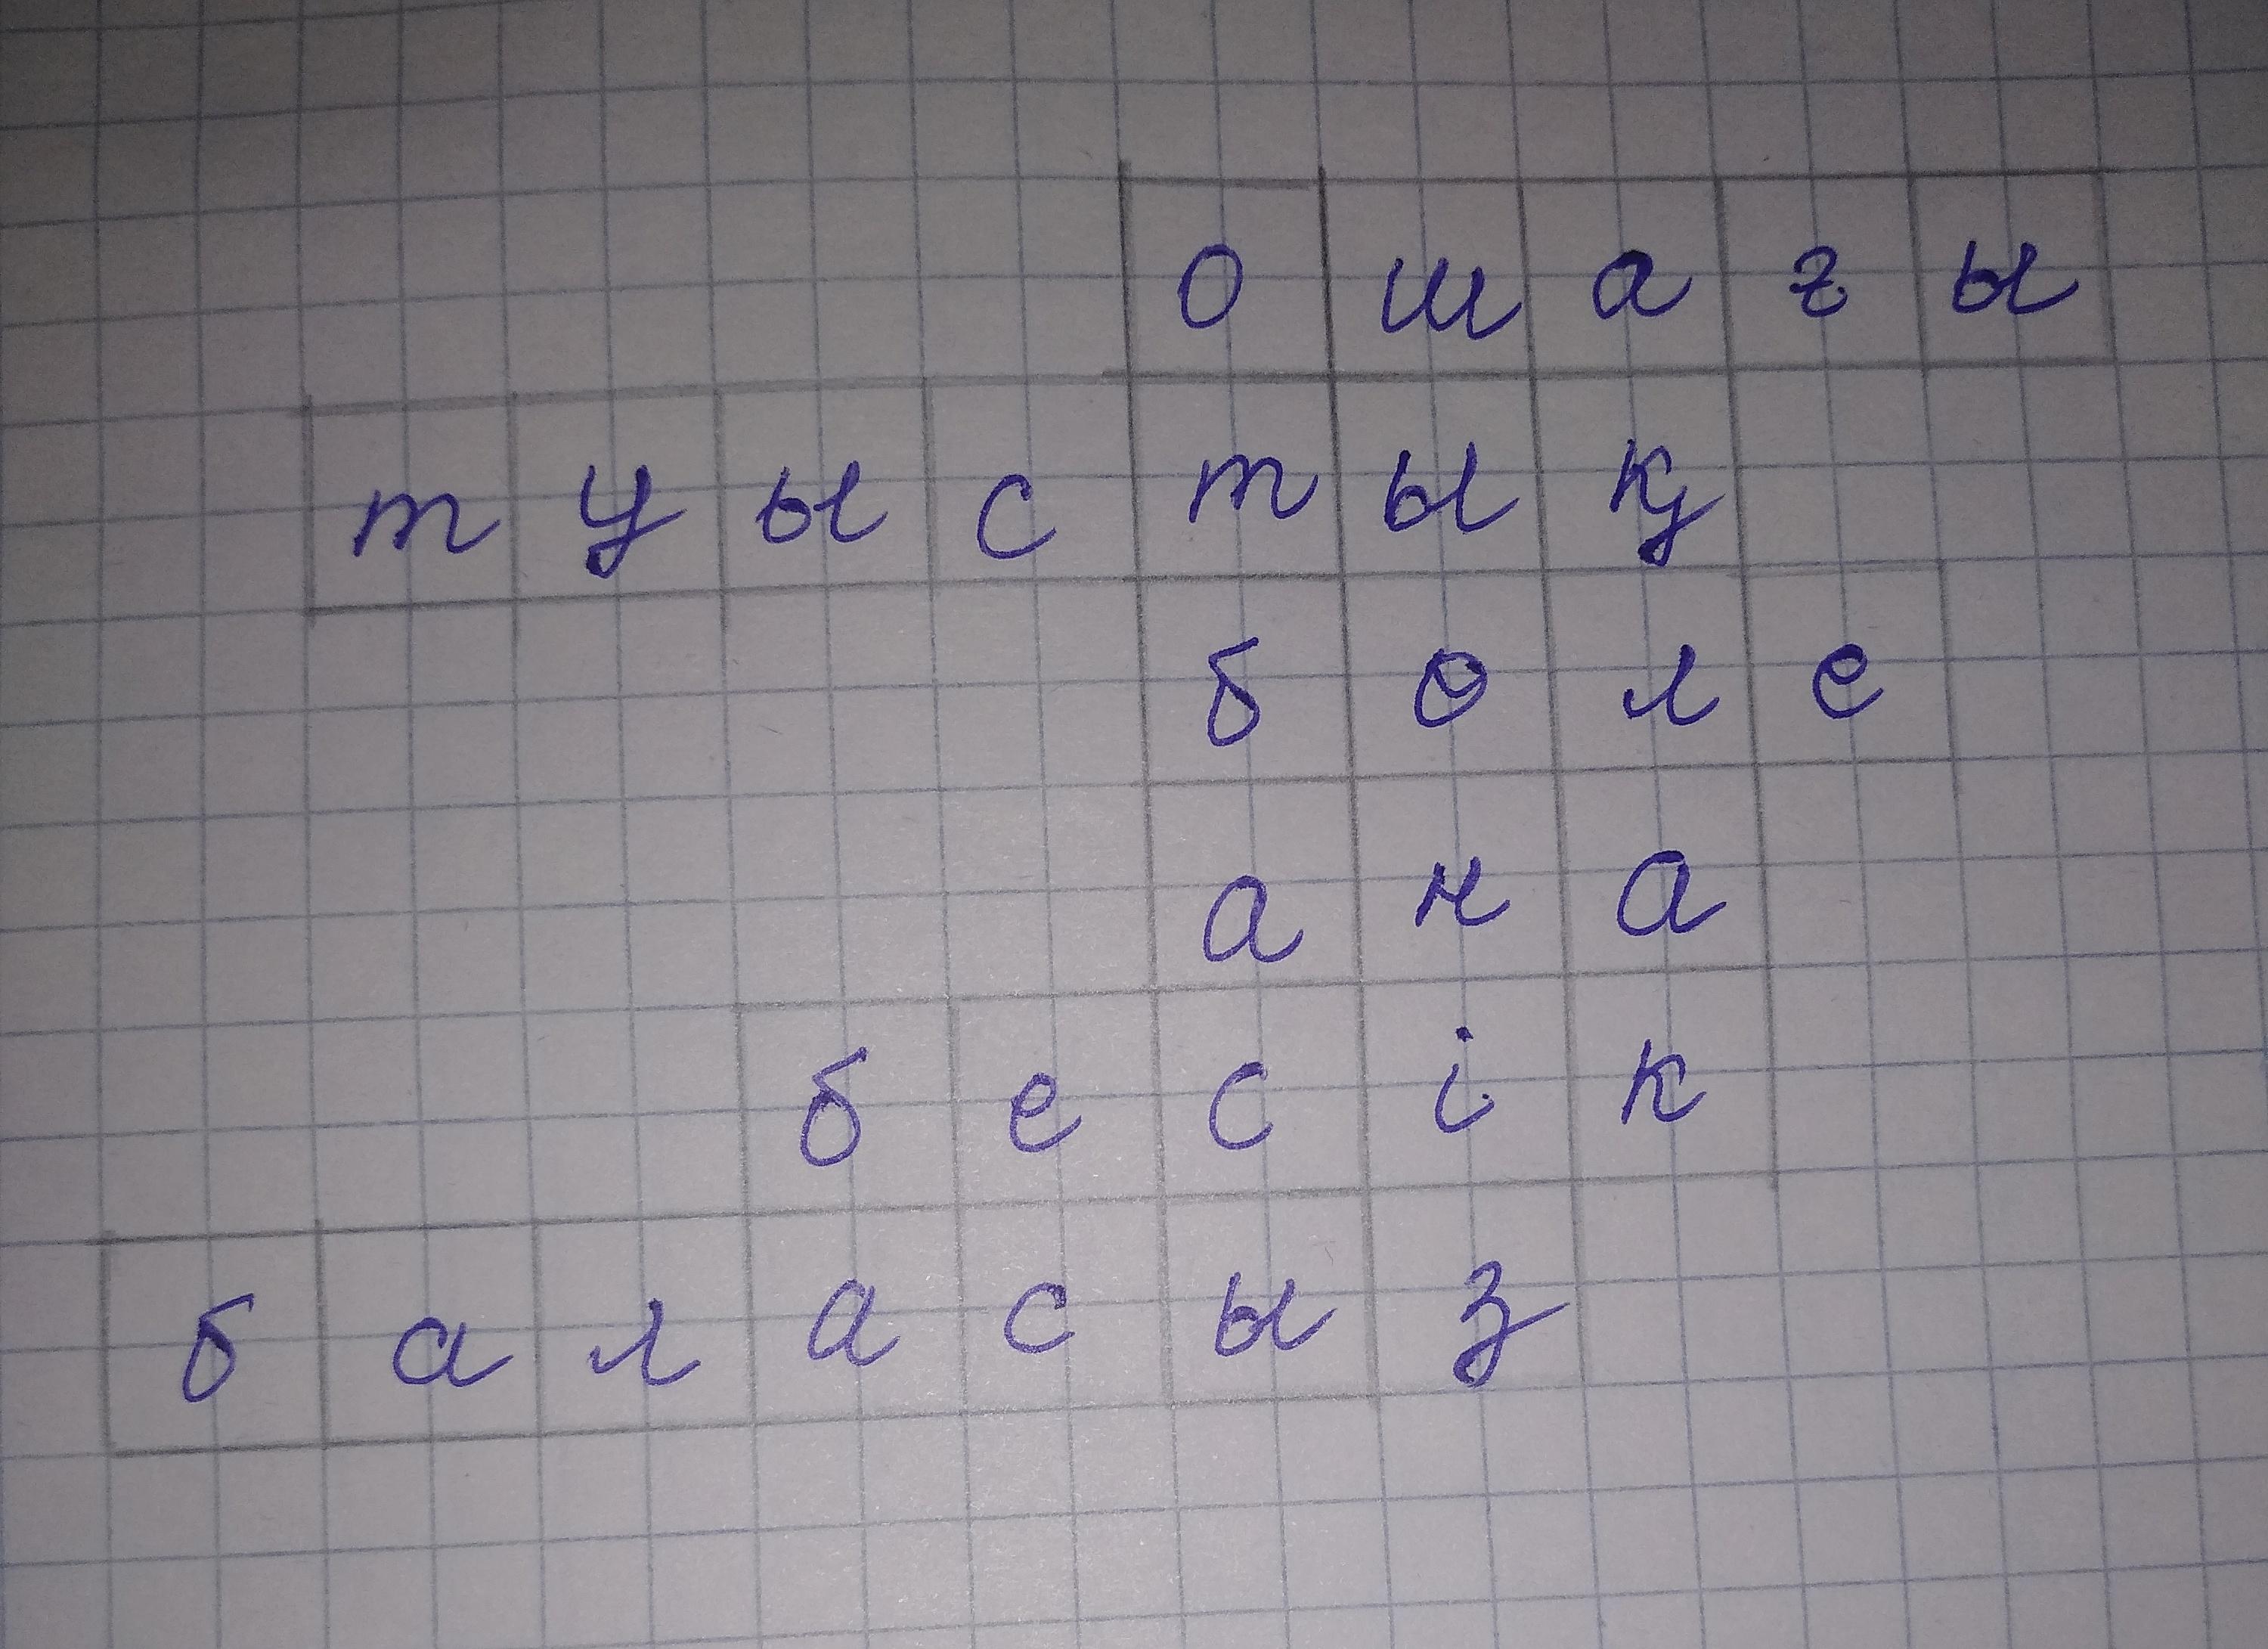 ошағы
туыстық
бөле
ана
бесік
баласыз